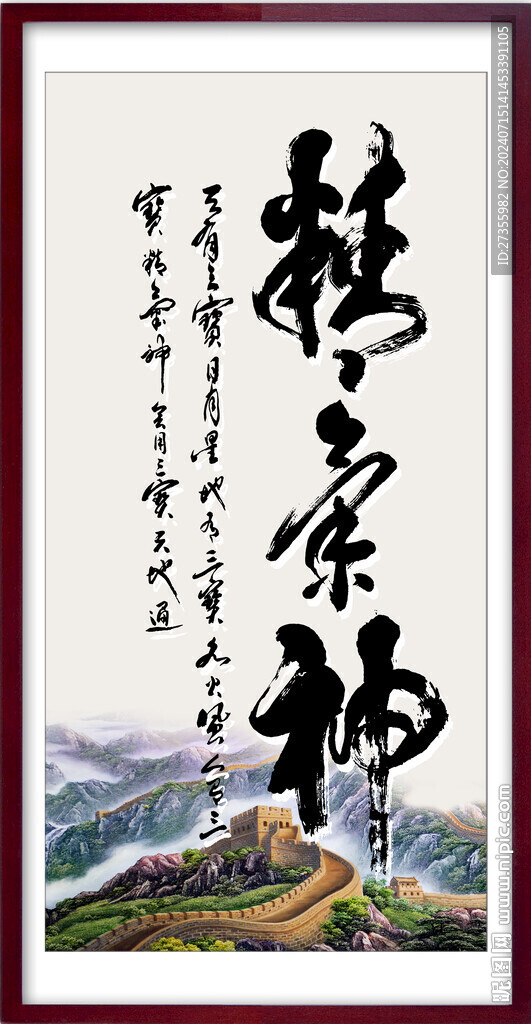 精氣神
天有三寶日月星地有三寶水火風人有三
寶精氣神善用三寶天地通
ID:27355982 NO:20240715141453391105
昵图网 www.nipic.com